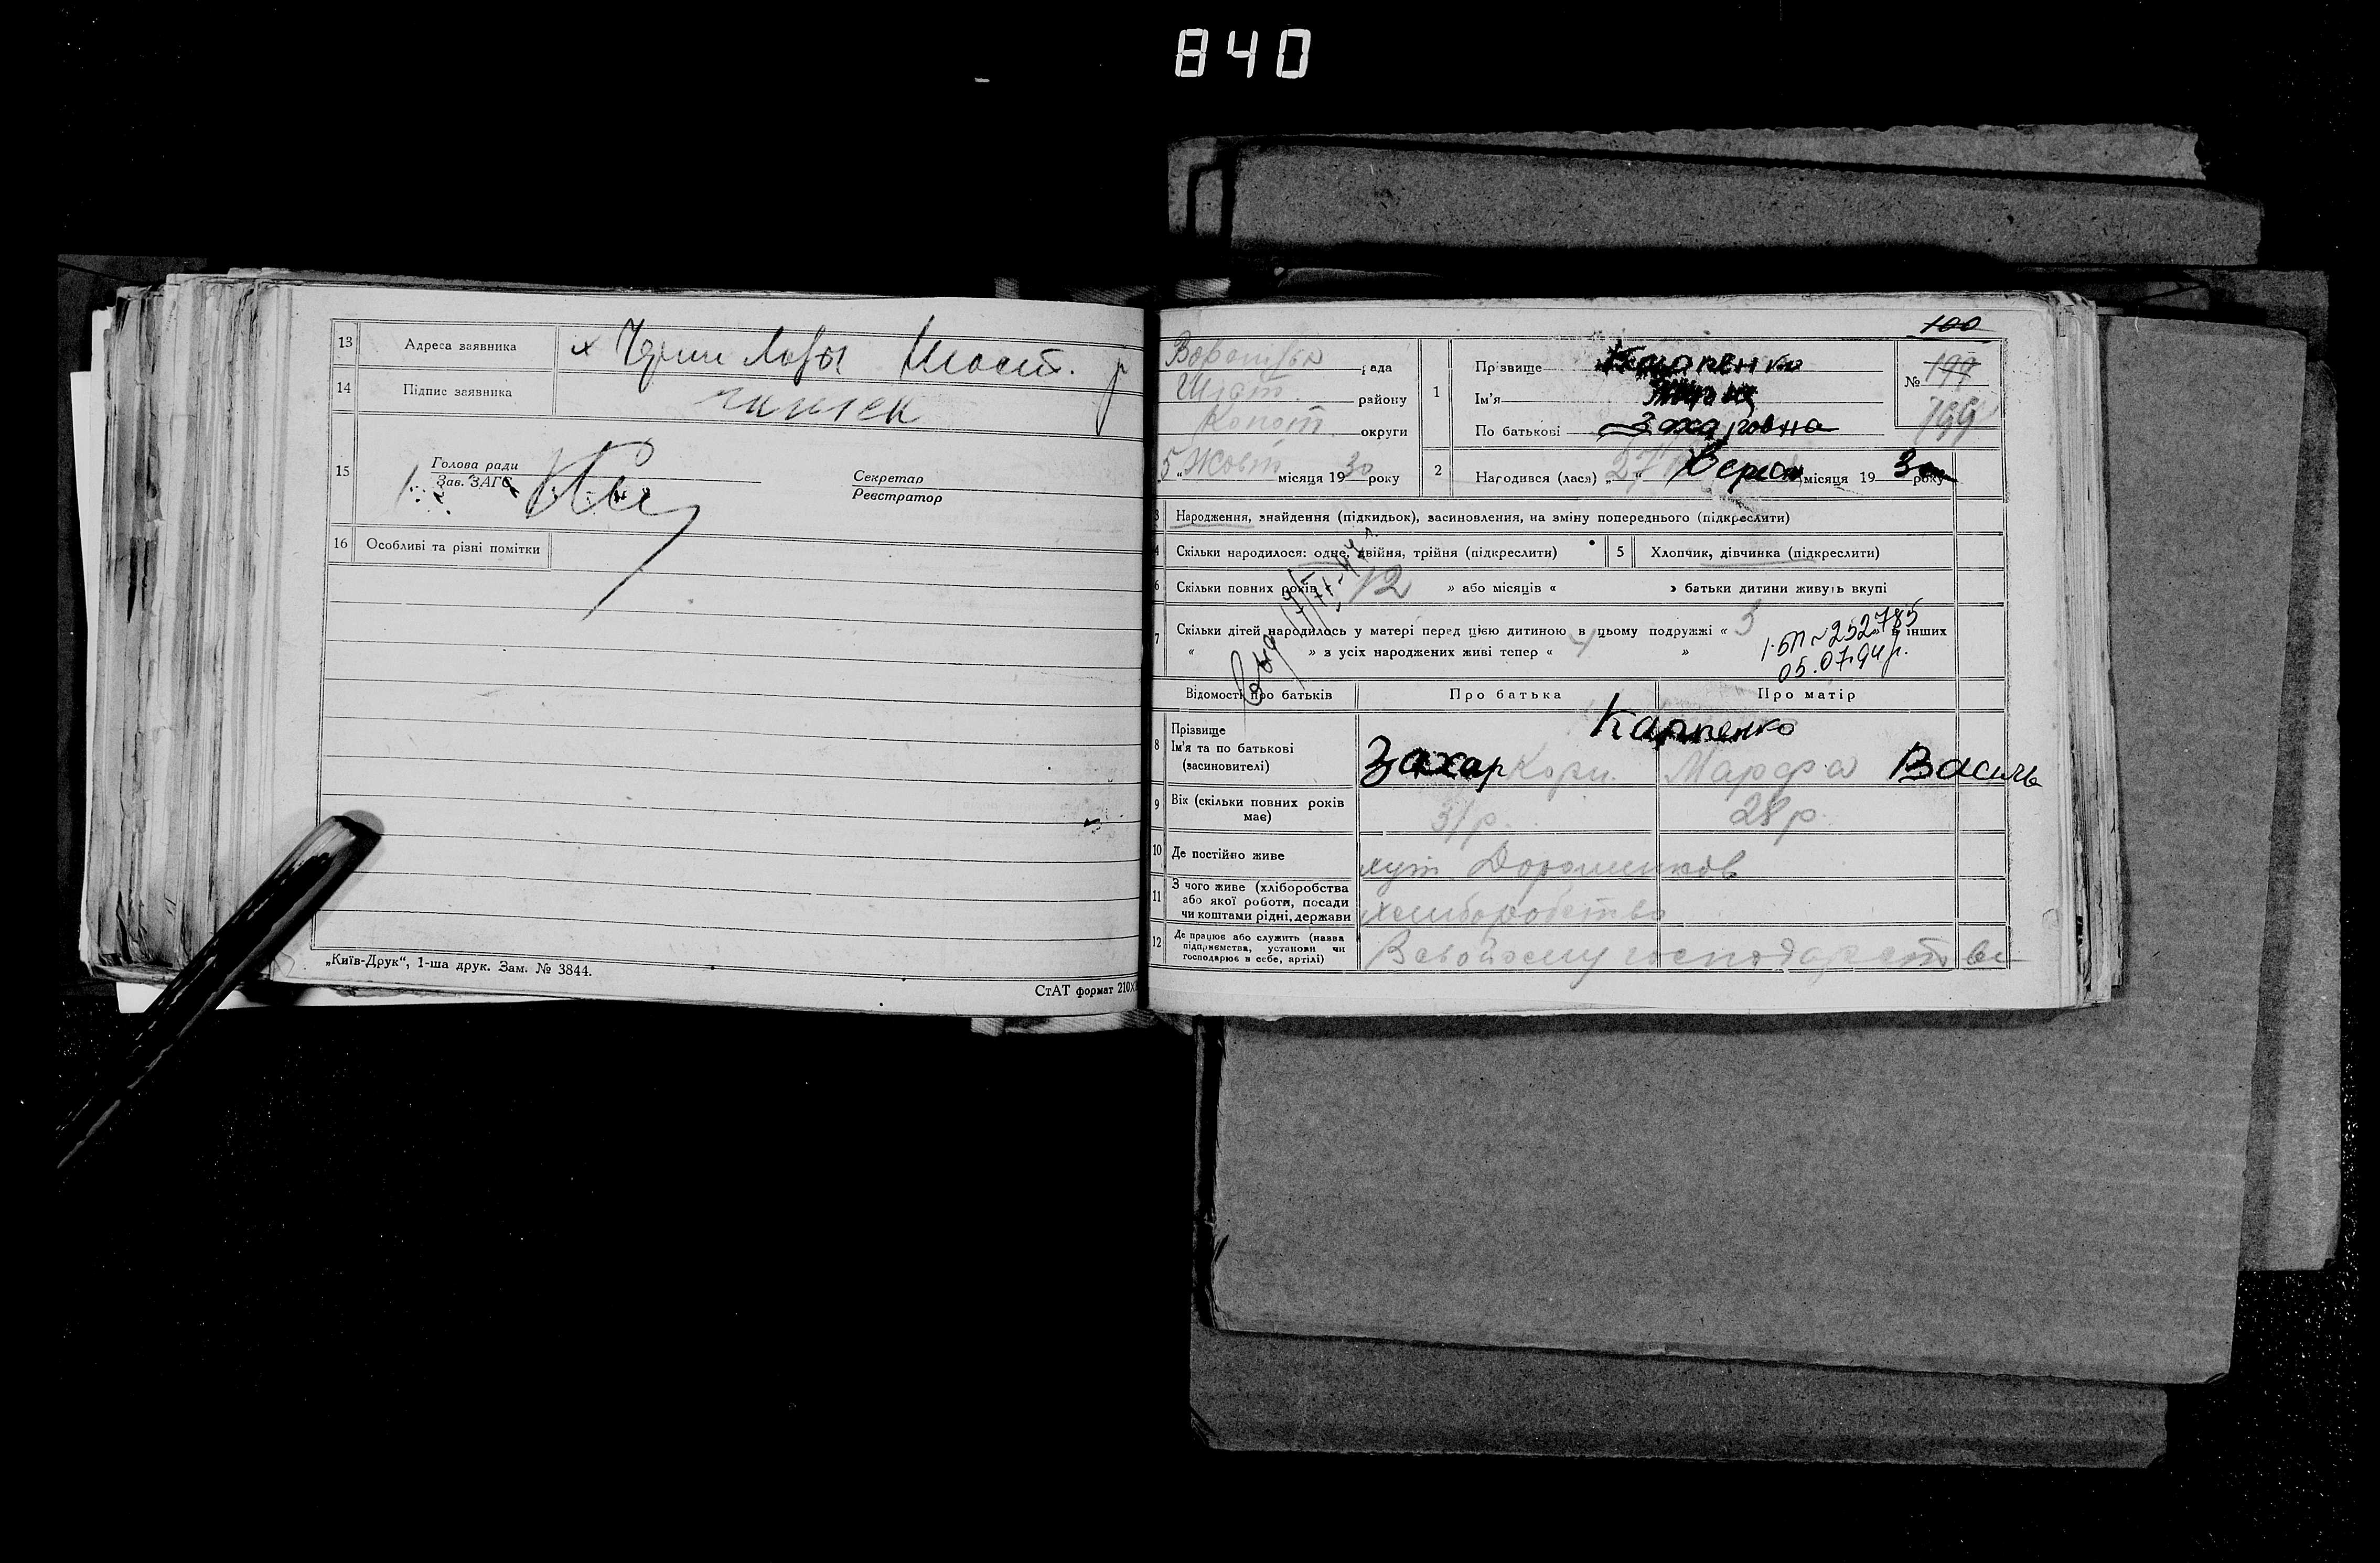 840
13 Адреса заявника
14 Підпис заявника
15 Голова ради
Зав. ЗАГС
Секретар
Реєстратор
16 Особливі та різні помітки
„Київ-Друк“, 1-ша друк. Зам. № 3844.
СтАТ формат 210X
100
рада
Шост. району
Конот округи
5 „ Жовт місяця 1930 року
1 Прізвище Карпенко
Ім'я
По батькові Захаровна
№ 199
199
2 Народився (лася) „ 27 “ Верес місяця 19 30 року
3 Народження, знайдення (підкидьок), засиновлення, на зміну попереднього (підкреслити)
4 Скільки народилося: одне, двійня, трійня (підкреслити)
5 Хлопчик, дівчинка (підкреслити)
6 Скільки повних років 12 » або місяців « » батьки дитини живуть вкупі
7 Скільки дітей народилось у матері перед цією дитиною в цьому подружжі « 5 » в інших
« » з усіх народжених живі тепер « 4 »
І-БП ~ 252785
05.07.94р.
Відомості про батьків
Про батька
Про матір
8 Прізвище
Ім'я та по батькові
(засиновителі)
Карпенко
Захар Корн. Марфа Василь
9 Вік (скільки повних років
має)
31 р. 28 р.
10 Де постійно живе
хут.
11 З чого живе (хліборобства
або якої роботи, посади
чи коштами рідні, держави
хліборобство
12 Де працює або служить (назва
підприємства, установи чи
господарює в себе, артілі)
В свойому господарстві